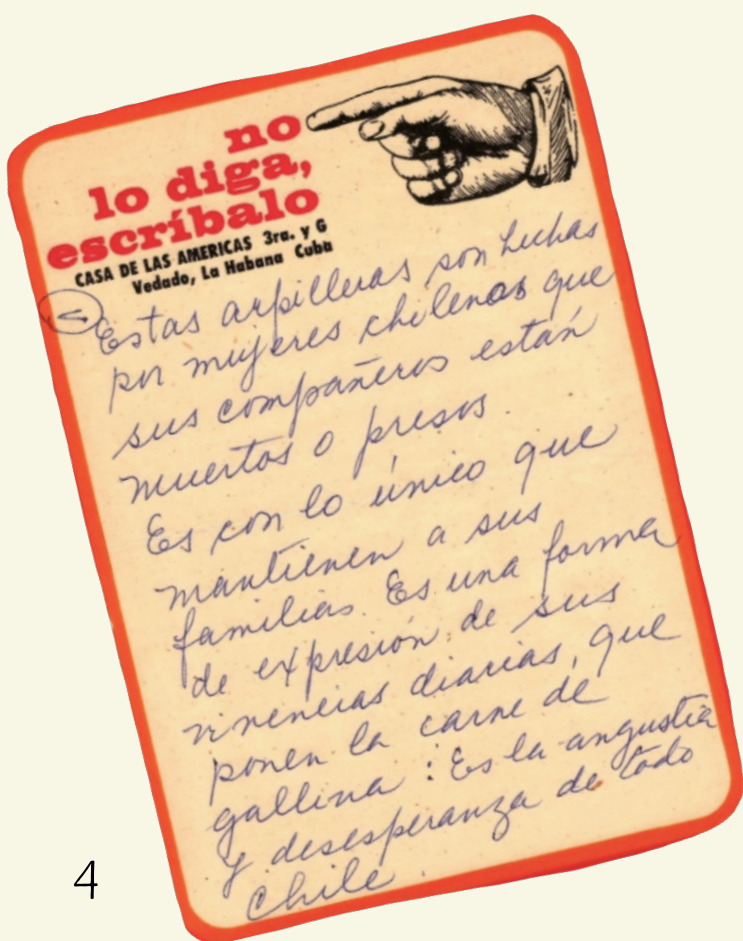 no
lo diga,
escríbalo
CASA DE LAS AMERICAS 3ra. y G
Vedado, La Habana Cuba
Estas arpilleras son hechas
por mujeres chilenas que
sus compañeros están
muertos o presos.
Es con lo único que
mantienen a sus
familias. Es una forma
de expresión de sus
vivencias diarias, que
ponen la carne de
gallina: Es la angustia
y desesperanza de todo
Chile.
4